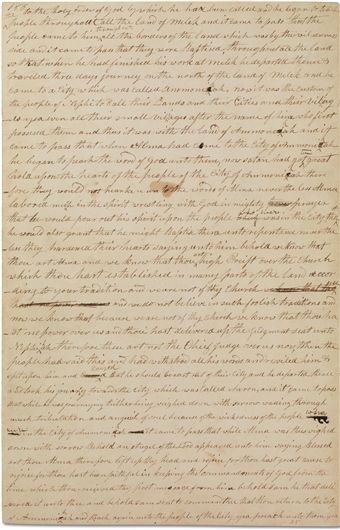 to the holy order of God by which he had been called and he began to teach
people throughout all the land of Melek and it came to pass that the
people came to him throughout all the borders of the land which was by the wilderness
side and it came to pass that they were baptized throughout all the land
so that when he had finished his work at melek he departed thence &
traveled three days journey on the north of the land of Melek and he
came to a City which was called Ammonihah now it was the custom of
the people of Nephi to call their Lands and their Cities and their vilag
es yea even all their small vilages after the name of him who first
possessed them and thus it was with the land of Ammonihah and it
came to pass that when Alma had come to the City of Ammonihah
he began to preach the word of god unto them now satan had got great
hold upon the hearts of the people of the City of Ammonihah there
fore they would not hearken unto the words of Alma nevertheless Alma
labored much in the spirit wrestling with God in mighty prayer
that he would pour out his spirit upon the people who was in the City that
he would also grant that he might Baptize them unto repentance neverthe
less they hardened their hearts saying unto him behold we know that
thou art Alma and we know that thou art high Priest over the Church
which thou hast established in many parts of the land accor
ding to your tradition and we are not of thy Church
and we do not believe in such foolish traditions and
now we know that because we are not of thy Church we know that thou hast
no power over us and thou hast delivered up the judgment seat unto
Nephihah therefore thou art not the Chief judge over us now when the
people had said this and had withstood all his words and reviled him &
spit upon him and caused that he should be cast out of their City and he departed thence
and took his journey towards the City which was called Aaron and it came to pass
that while he was journeying thither being weighed down with sorrow wading through
much tribulation and anguish of soul because of the wickedness of the people
in the City of Ammonihah it came to pass that while Alma was thus weighed
down with sorrow behold an angel of the Lord appeared unto him saying blessed
art thou Alma therefore lift up thy head and rejoice for thou hast great cause to
rejoice for thou hast been faithful in keeping the commandments of God from the
time which thou received thy first message from him behold I am he that deli
vered it unto thee and behold I am sent to command thee that thou return to the City
of Ammonihah and Preach again unto the people of the City yea preach unto them yea